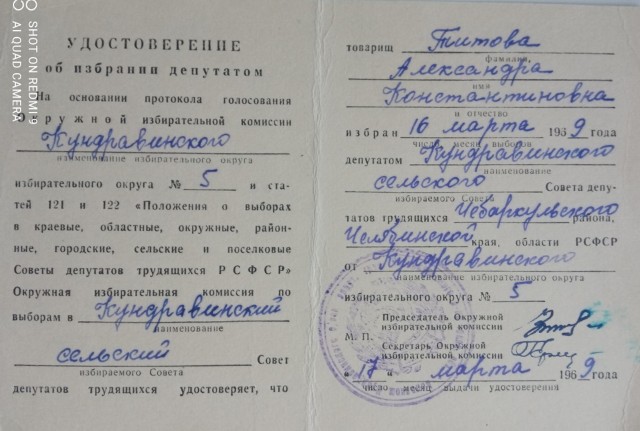 УДОСТОВЕРЕНИЕ
об избрании депутатом
На основании протокола голосования
Окружной избирательной комиссии
Кундравинского
наименование избирательного округа
избирательного округа № 5 и ста-
тей 121 и 122 «Положения о выборах
в краевые, областные, окружные, район-
ные, городские, сельские и поселковые
Советы депутатов трудящихся РСФСР»
Окружная избирательная комиссия по
выборам в Кундравинский
наименование
сельский Совет
избираемого Совета
депутатов трудящихся удостоверяет, что
товарищ Титова
фамилия,
Александра
имя
Константиновна
и отчество
избран 16 марта 1969 года
число месяц выборов
депутатом Кундравинского
наименование
сельского Совета депу-
избираемого Совета
татов трудящихся Чебаркульского района,
Челябинской края, области РСФСР
от Кундравинского
наименование избирательного округа
избирательного округа № 5
Председатель Окружной
избирательной комиссии
М. П.
Секретарь Окружной
избирательной комиссии
« 17 » марта 1969 года
число месяц выдачи удостоверения
SHOT ON REDMI 9
AI QUAD CAMERA